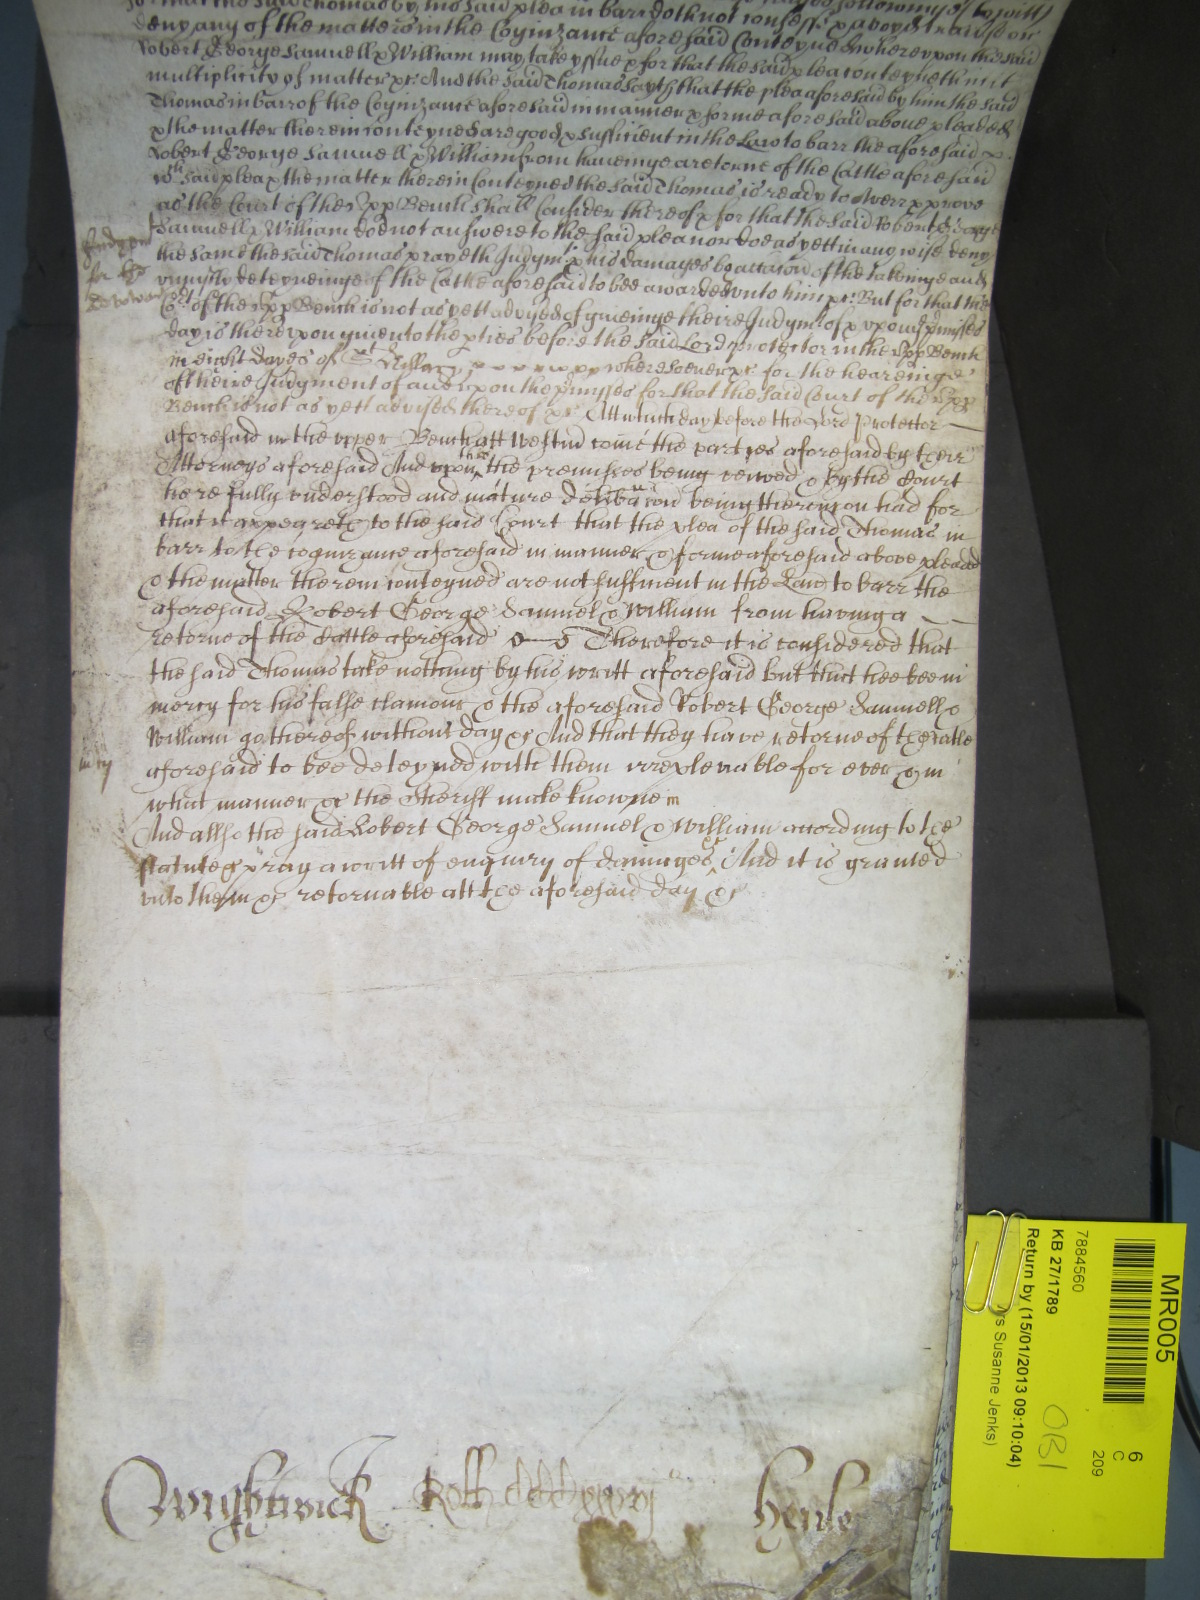 that the said Thomas by his said plea in barr doth not confesse
deny any of the matters in the Cognizance aforesaid Conteyned wherevpon the said
Robert George Samuell & William may take yssue & for that the said plea conteyneth
multiplicity of matter &c And the said Thomas sayth that the plea aforesaid by him the said
Thomas in barr of the Cognizance aforesaid in manner & forme aforesaid aboue pleaded
& the matter therein conteyned are good & sufficient in the Law to barr the aforesaid
Robert George Samuell & William from haueinge a retorne of the Cattle aforesaid
wch said plea & the matter therein Conteyned the said Thomas is ready to averr & prove
as the Court of the Vpp Bench shall Consider thereof & for that the said Robert George
Samuell & William doe not answere to the said plea nor doe as yett in any wise deny
the same the said Thomas prayeth Judgmt & his damages by occasion of the takeinge and
vniustly deteyneinge of the Cattle aforesaid to bee awarded vnto him &c: But for that the
Cort of the Vpp Bench is not as yett advysed of giueinge theire Judgmt of & vpon the pmisses
day is therevpon giuen to the pties before the said Lord protector in the Vpp Bench
in eight dayes of St Hillary wheresoeuer &c for the heareinge
of theire Judgment of and vpon the pmisses for that the said Court of the Vpp
Bench is not as yett advised thereof &c Att which day before the Lord Protector
aforesaid in the vpper Bench att Westm come the partyes aforesaid by their
Attorneys aforesaid And vpon the premisses being veiwed & by the Court
here fully vnderstood and mature deliberacon being therevpon had for
that it appeareth to the said Court that the plea of the said Thomas in
barr to the cognizance aforesaid in manner & forme aforesaid above pleaded
& the matter therein conteyned are not sufficient in the Law to barr the
aforesaid Robert George Samuel & William from having a
retorne of the Cattle aforesaid Therefore it is considered that
the said Thomas take nothing by his writt aforesaid but that hee bee in
mercy for his false clamour & the aforesaid Robert George Samuell &
William go thereof without day &c And that they have retorne of the cattle
aforesaid to bee deteyned with them irreplevisable for ever & in
mcy
what manner &c the Sheriff make knowne
And allso the said Robert George Samuel & William according to the
statute &c pray a writt of enquiry of damages &c And it is granted
vnto them &c retornable att the aforesaid day &c
Wightwick Roth Henle
MR005
6
C
209
7884560
KB 27/1789
Return by (15/01/2013 09:10:04)
rs Susanne Jenks)
OB1